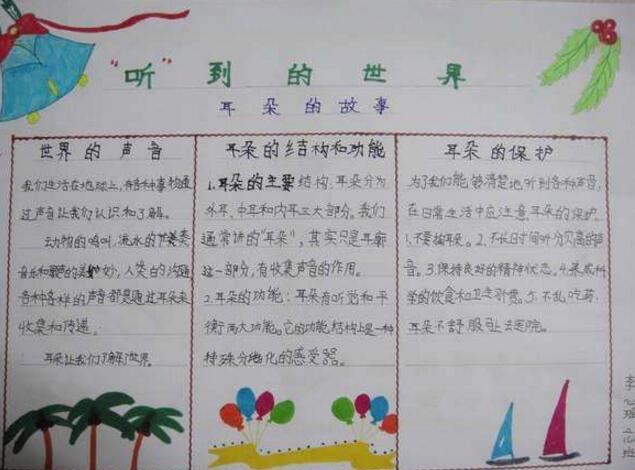 "听"到的世界
耳朵的故事
世界的声音
我们生活在地球上,有各种事物通
过声音让我们认识和了解。
动物的鸣叫,流水的节奏
音乐和美妙,人类的沟通
各种各样的声音都是通过耳朵来
收集和传递。
耳朵让我们了解了世界。
耳朵的结构和功能
1.耳朵的主要结构:耳朵分为
外耳、中耳和内耳三大部分。我们
通常讲的"耳朵",其实只是耳廓
这一部分,有收集声音的作用。
2.耳朵的功能:耳朵有听觉和平
衡两大功能。它的功能结构上是一种
特殊分化的感受器。
耳朵的保护
为了我们能够清楚地听到各种声音,
在日常生活中应注意耳朵的保护
1.不要掏耳朵。2.不长时间听分贝高的声
音。3.保持良好的精神状态。4.养成科
学的饮食和卫生习惯。5.不乱吃药,
耳朵不舒服马上去医院。
李
心